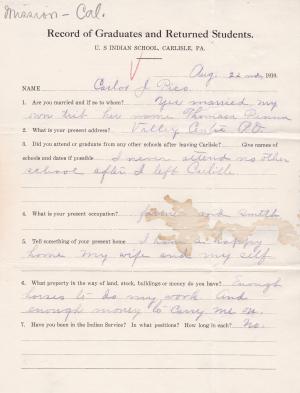 Mission - Cal.
Record of Graduates and Returned Students.
U. S INDIAN SCHOOL, CARLISLE, PA.
Aug. 22 nd, 1910.
NAME Carlos J. Pico
1. Are you married and if so to whom? Yes married my
own her name Thomasa
2. What is your present address? Valley Center
3. Did you attend or graduate from any other schools after leaving Carlisle? Give names of
schools and dates if possible I never attend no other
school after I left Carlisle
4. What is your present occupation? work smith
5. Tell something of your present home I have a happy
home my wife and my self
6. What property in the way of land, stock, buildings or money do you have? Enough
horses to do my work And
enough money to carry me on.
7. Have you been in the Indian Service? In what positions? How long in each? No.